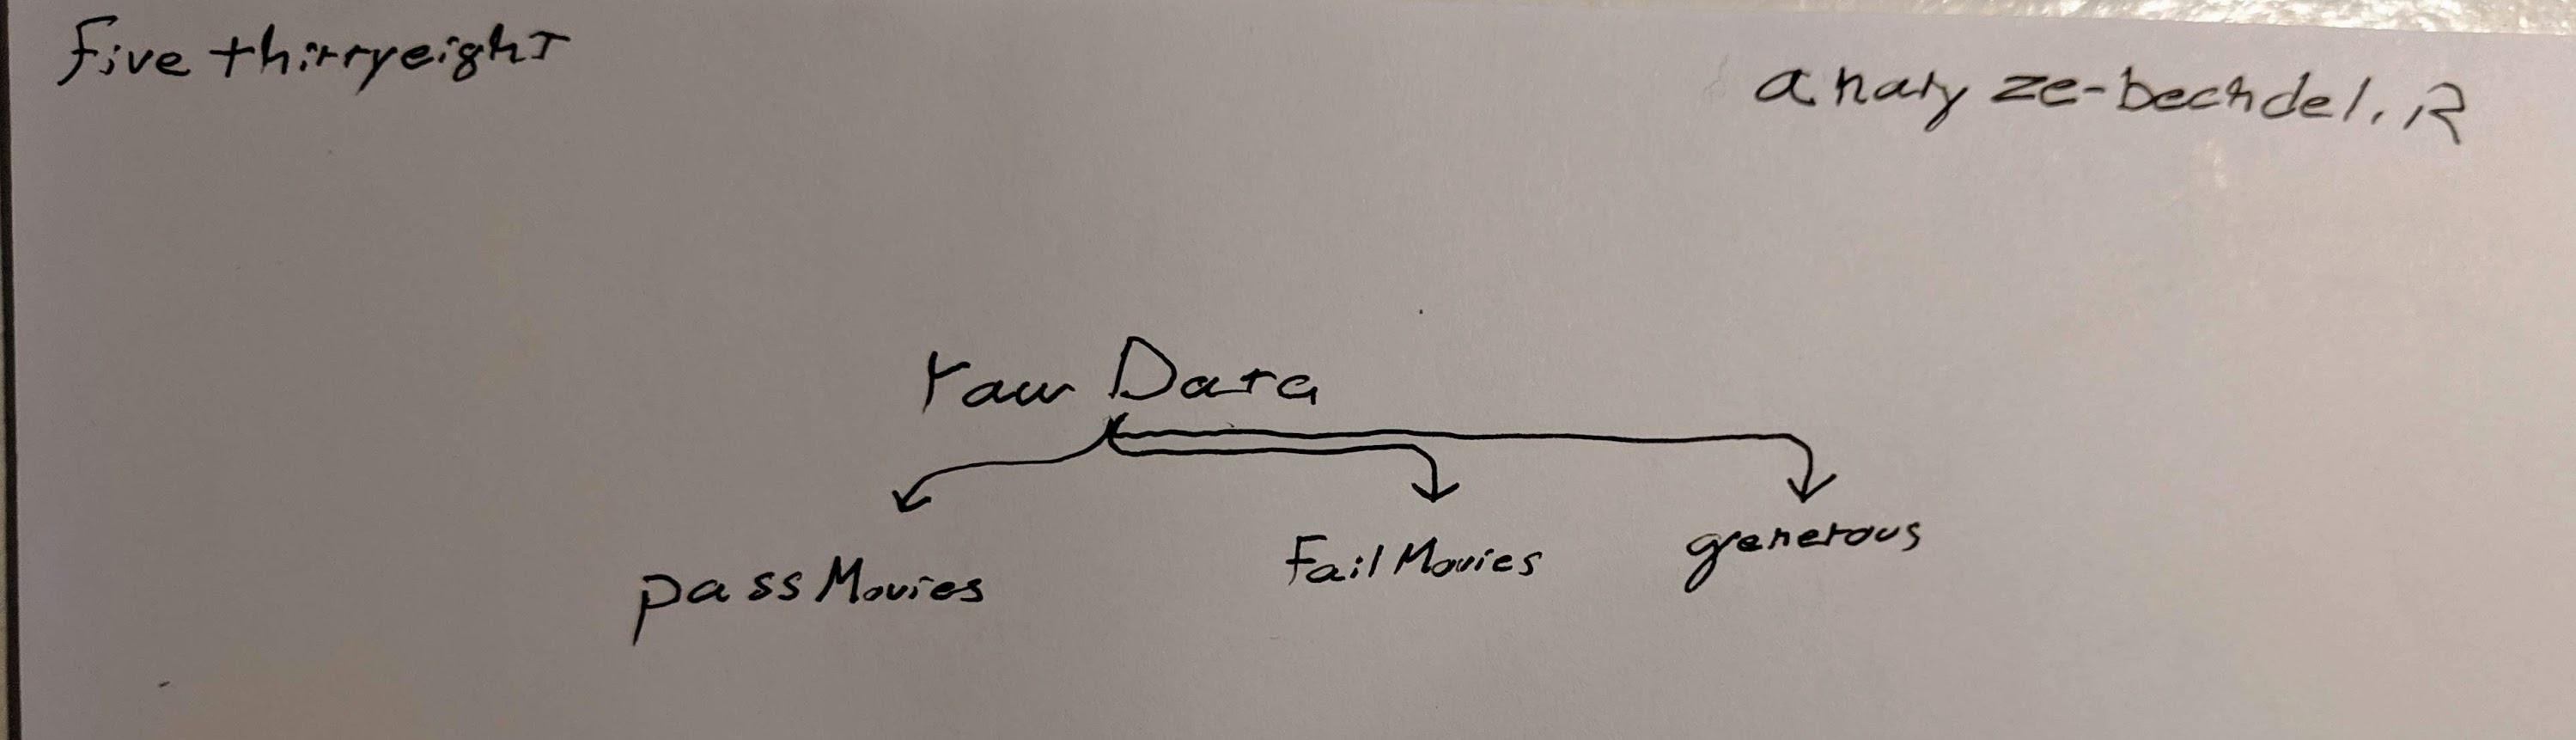 fivethirtyeight
analyze-bechdel.R
rawData
passMovies
failMovies
generous